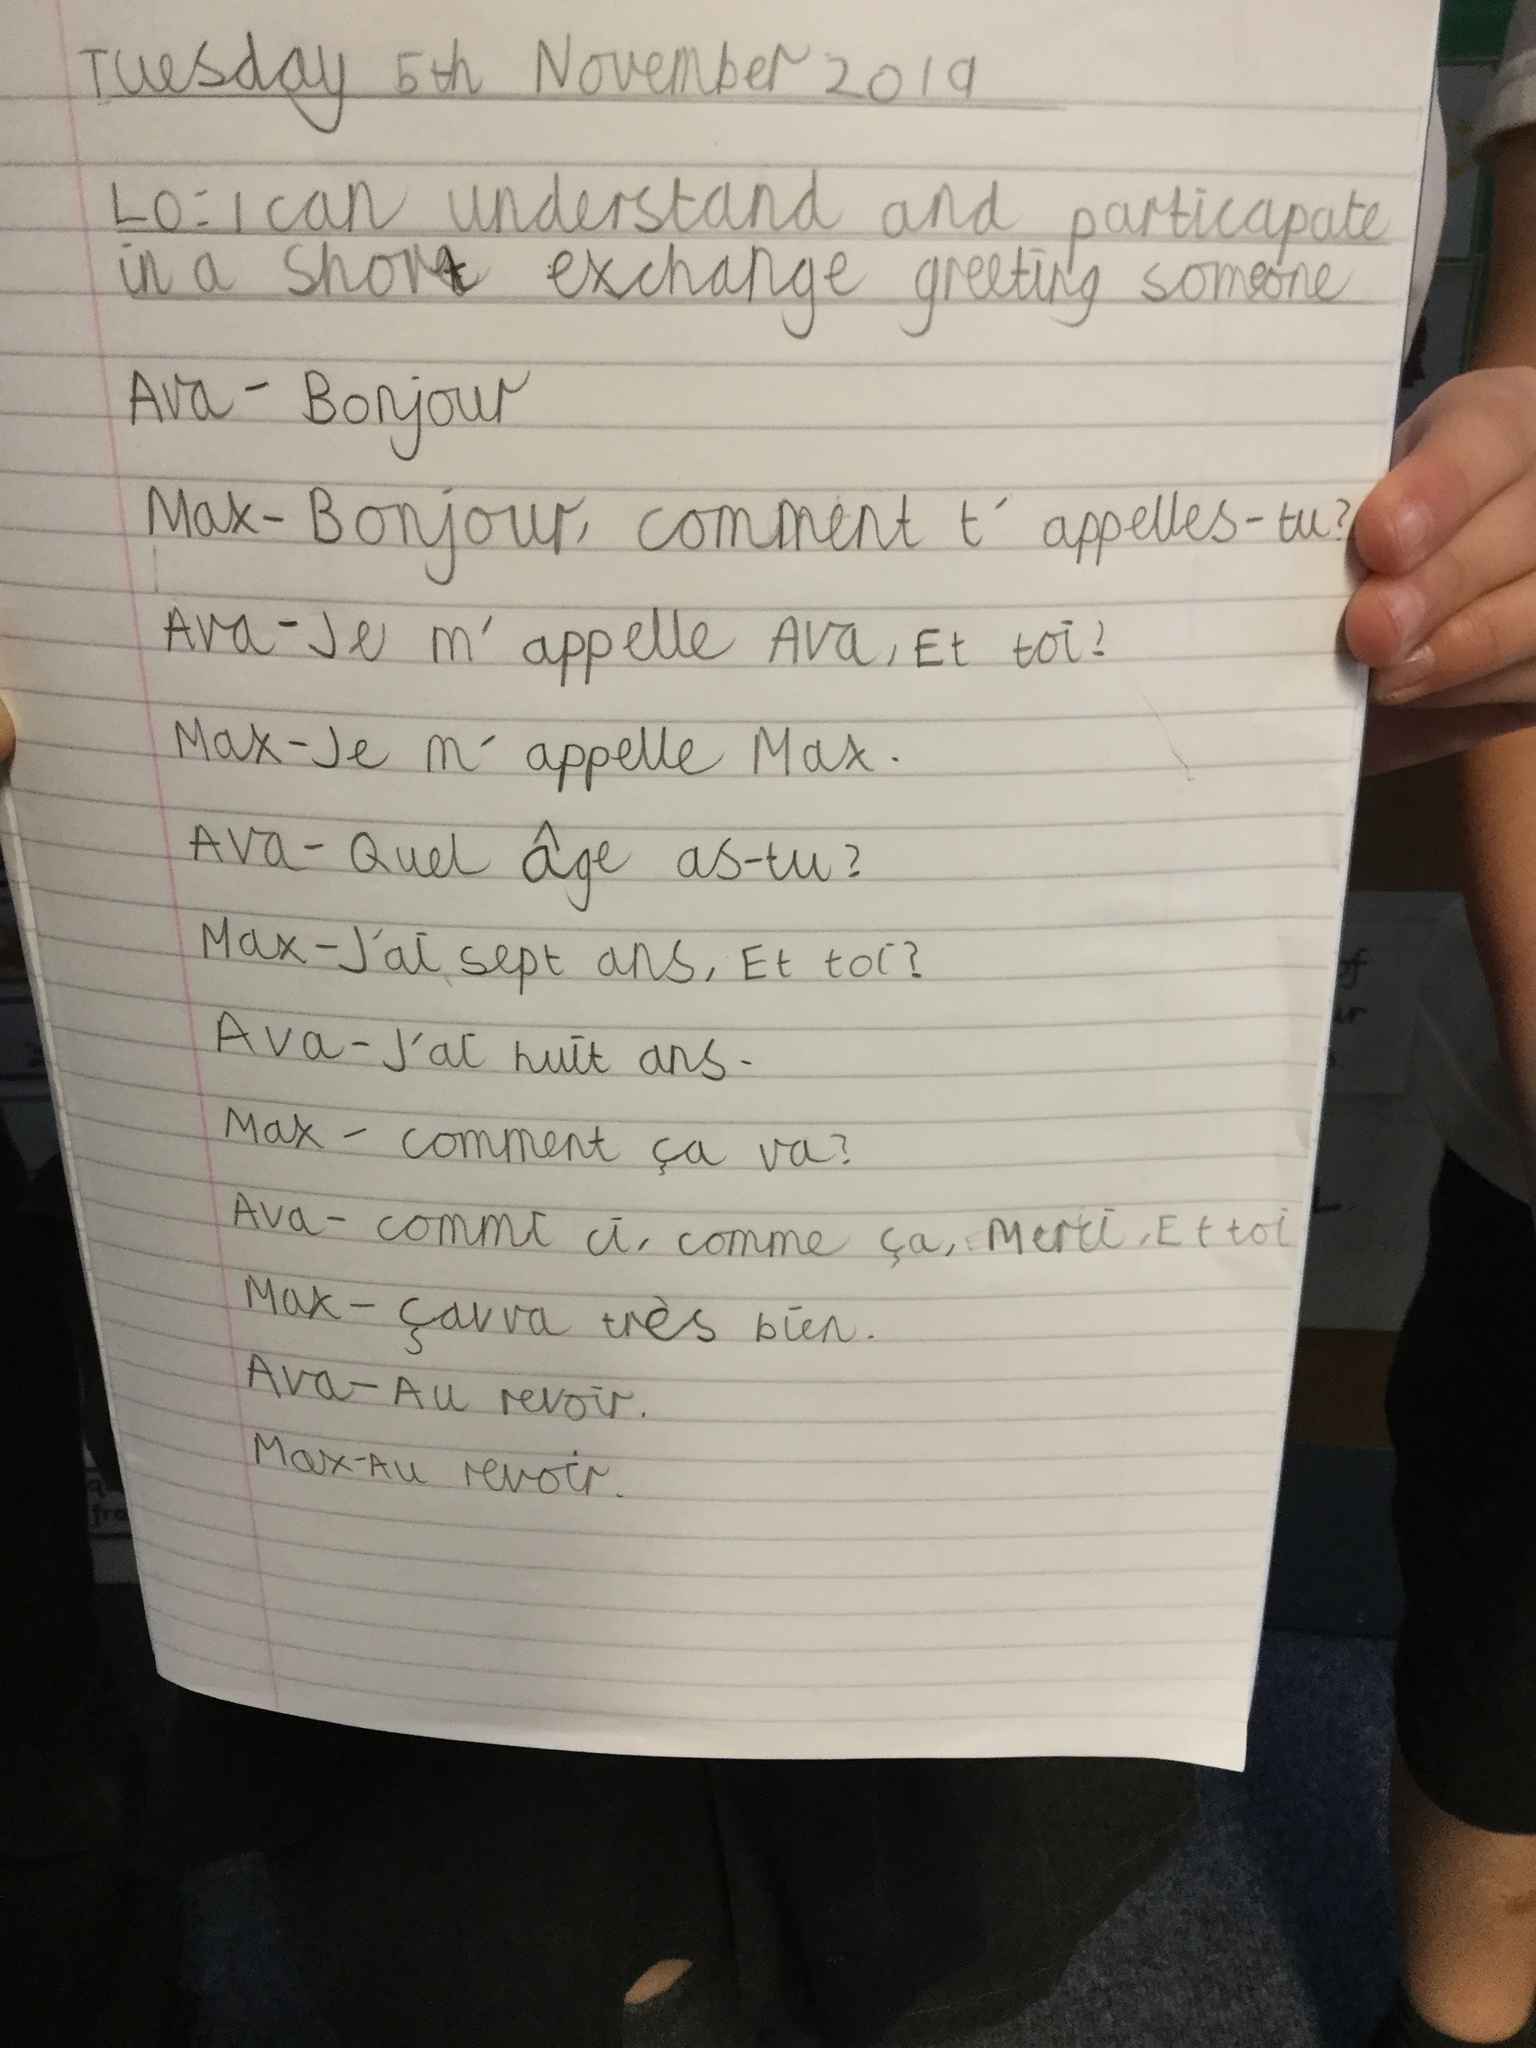 Tuesday 5th November 2019
LO:I can understand and particapate
in a short exchange greeting someone
Ava - Bonjour
Max- Bonjour, comment t' appelles-tu?
Ava -Je m' appelle Ava, Et toi?
Max-Je m' appelle Max.
Ava- Quel âge as-tu?
Max-J'ai sept ans, Et toi?
Ava-J'ai huit ans.
Max - comment ça va?
Ava- commi ci, comme ça, Merci, Et toi
Max- çavva très bien.
Ava-Au revoir.
Max-Au revoir.